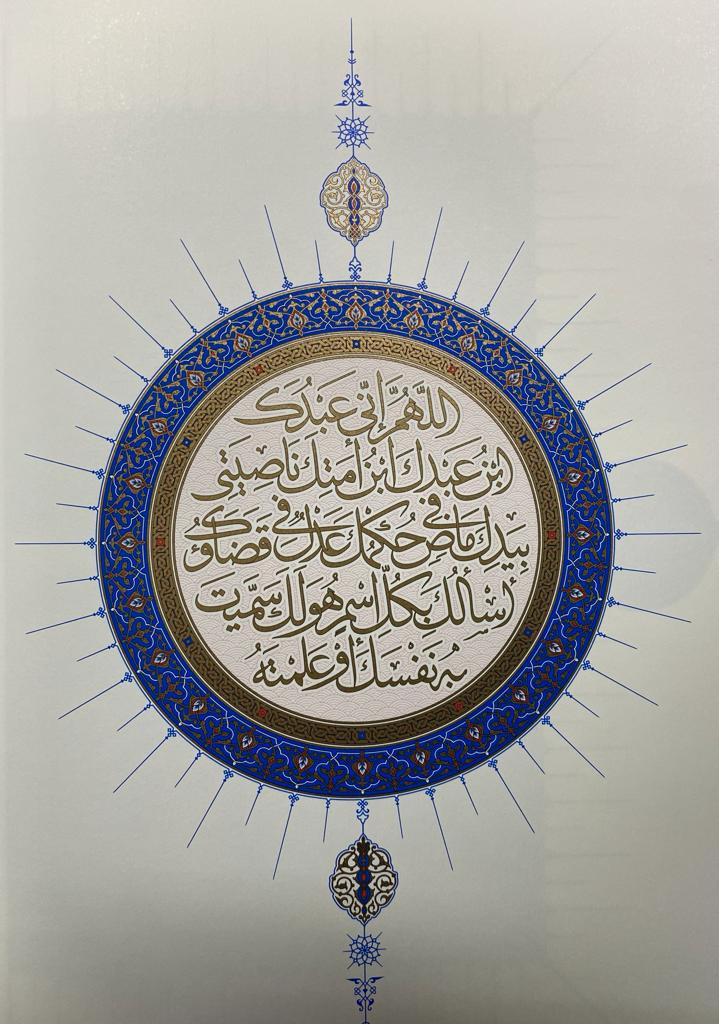 اللَّهُمَّ إِنِّي عَبْدُكَ
ابْنُ عَبْدِكَ ابْنُ أَمَتِكَ نَاصِيَتِي
بِيَدِكَ مَاضٍ فِيَّ حُكْمُكَ عَدْلٌ فِيَّ قَضَاؤُكَ
أَسْأَلُكَ بِكُلِّ اسْمٍ هُوَ لَكَ سَمَّيْتَ
بِهِ نَفْسَكَ أَوْ عَلَّمْتَهُ